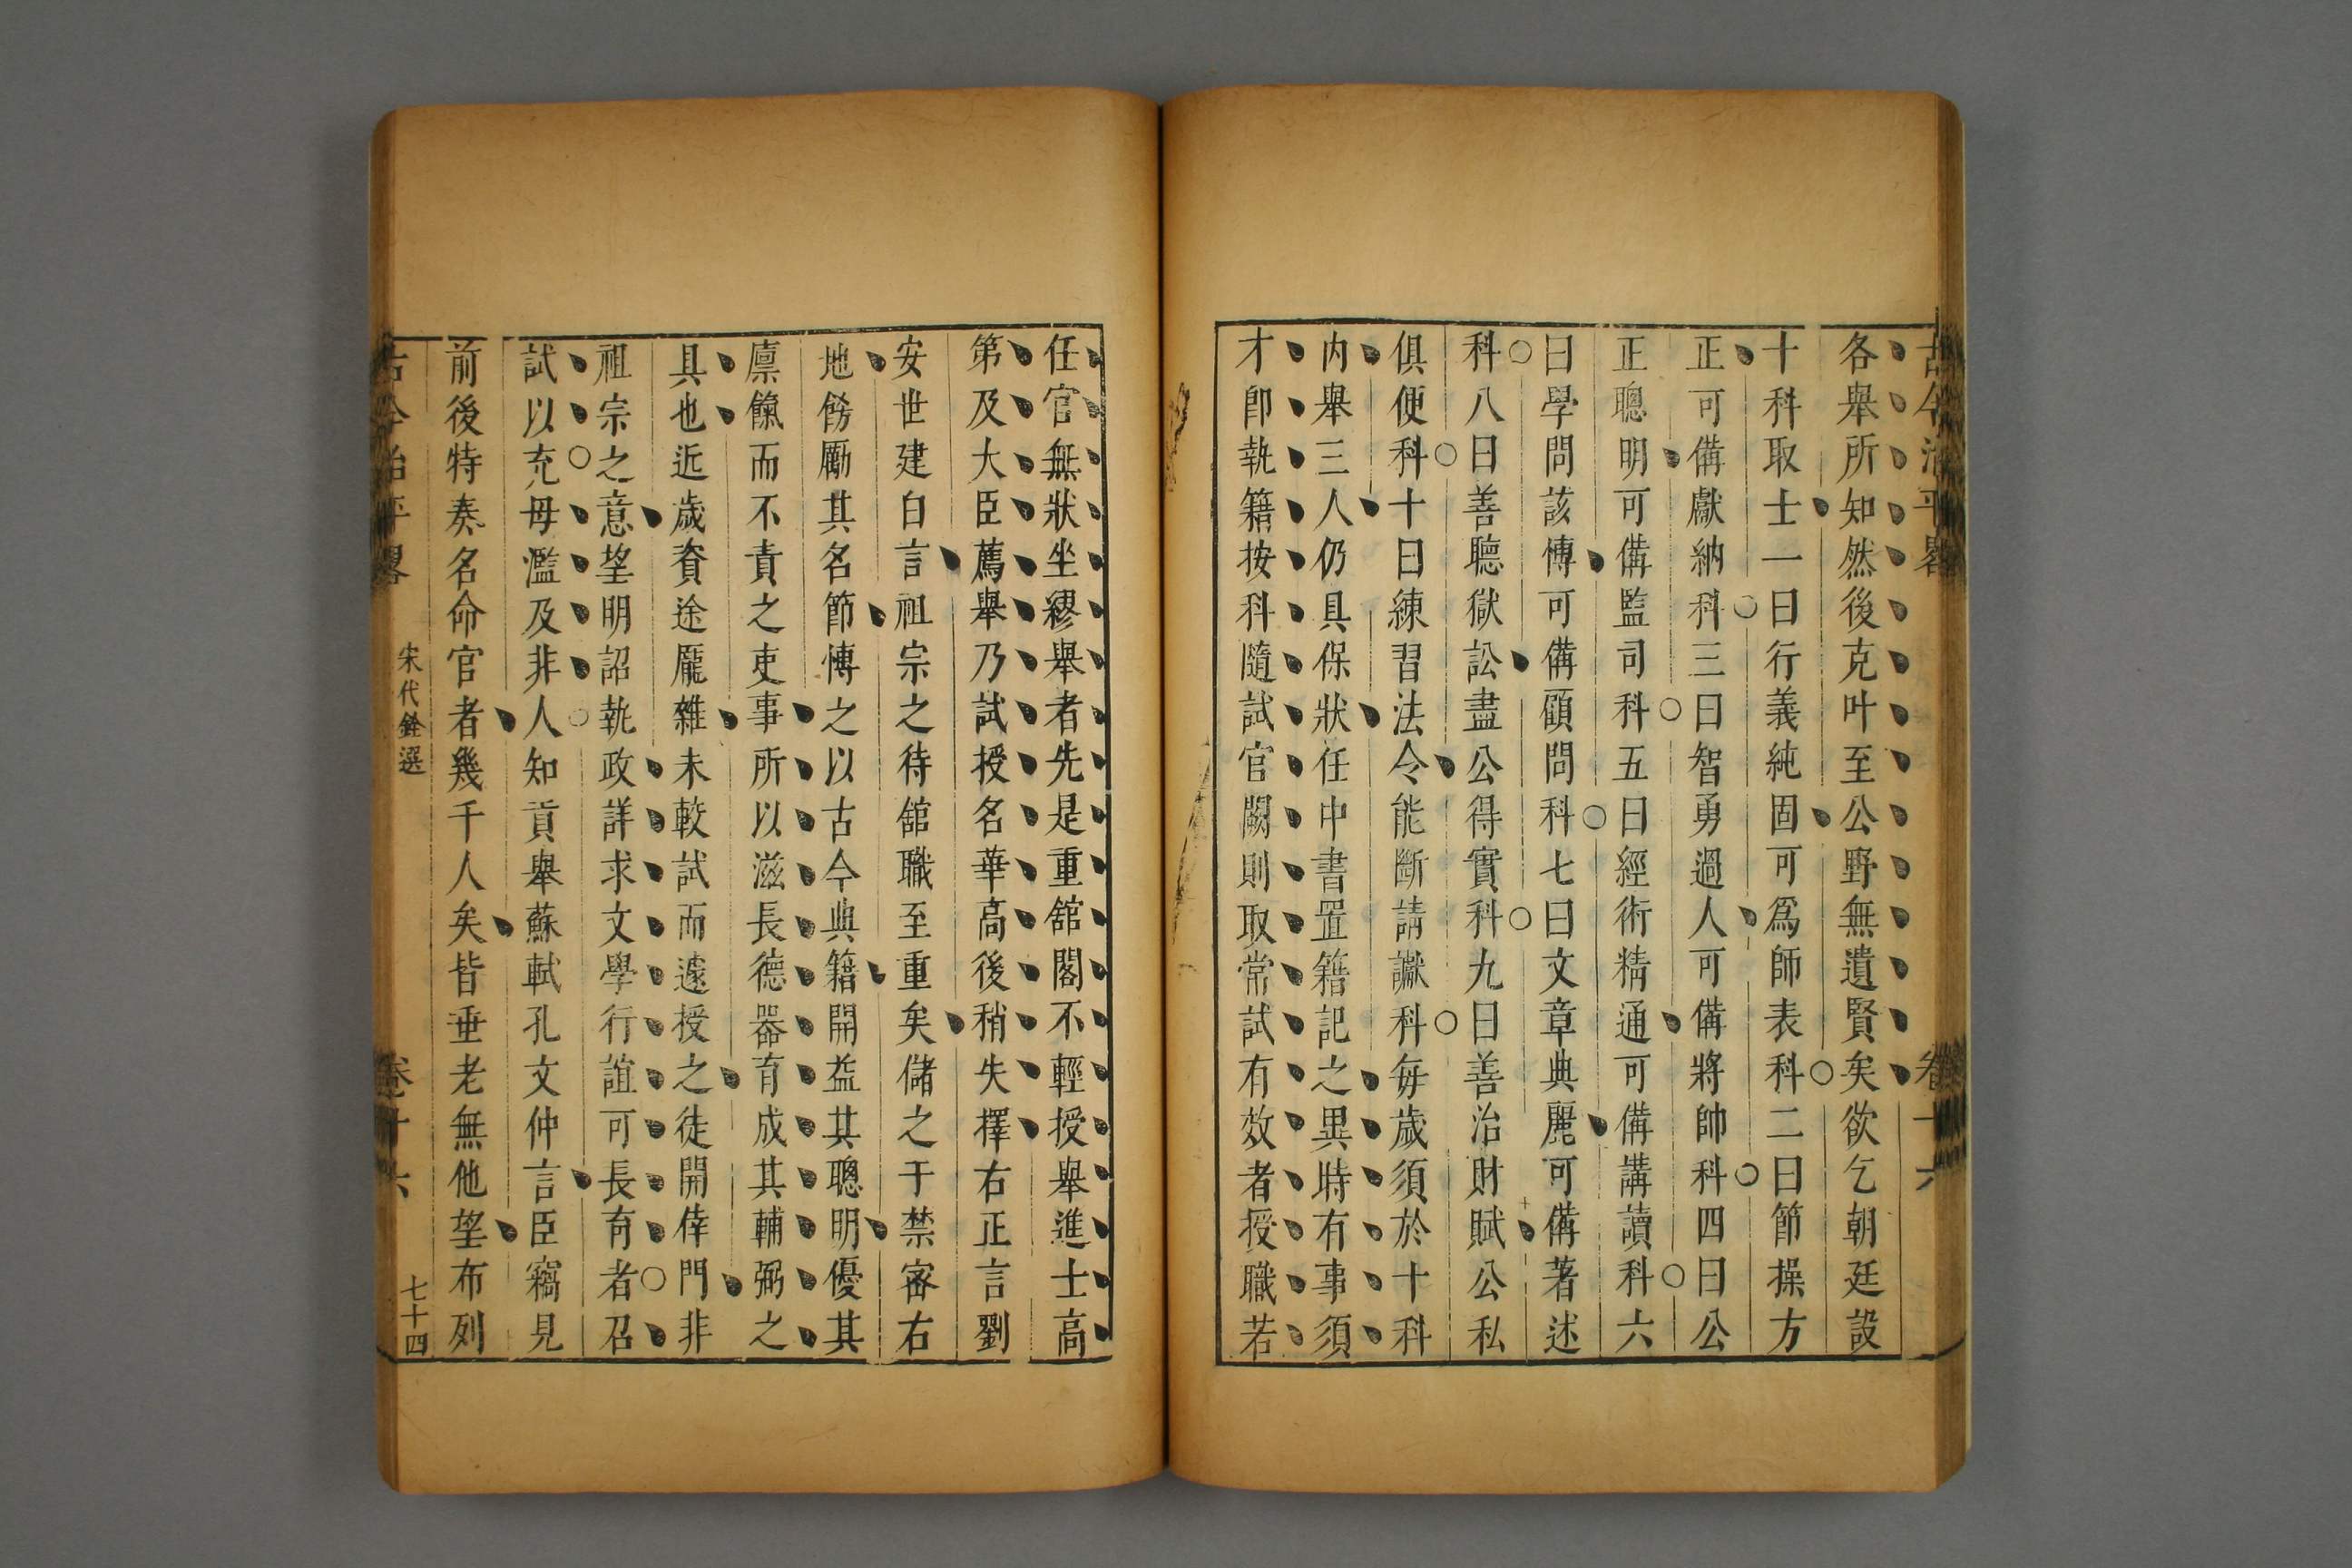 古今治平畧 卷十六
各舉所知然後克叶至公野無遺賢矣欲乞朝廷設
十科取士一曰行義純固可爲師表科二曰節操方
正可備獻納科三曰智勇過人可備將帥科四曰公
正聰明可備監司科五曰經術精通可備講讀科六
曰學問該博可備顧問科七曰文章典麗可備著述
科八曰善聽獄訟盡公得實科九曰善治財賦公私
俱便科十曰練習法令能斷請讞科每歲須於十科
內舉三人仍具保狀任中書置籍記之異時有事須
才卽執籍按科隨試官闕則取常試有效者授職若
任官無狀坐繆舉者先是重舘閣不輕授舉進士高
第及大臣薦舉乃試授名華高後稍失擇右正言劉
安世建白言祖宗之待舘職至重矣儲之于禁密右
地傍勵其名節博之以古今典籍開益其聰明優其
廪餼而不責之吏事所以滋長德器育成其輔弼之
具也近歲資途龐雜未較試而遽授之徒開倖門非
祖宗之意望明詔執政詳求文學行誼可長育者召
試以充毋濫及非人知貢舉蘇軾孔文仲言臣竊見
前後特奏名命官者幾千人矣皆垂老無他望布列
古今治平畧 宋代銓選 卷十六 七十四